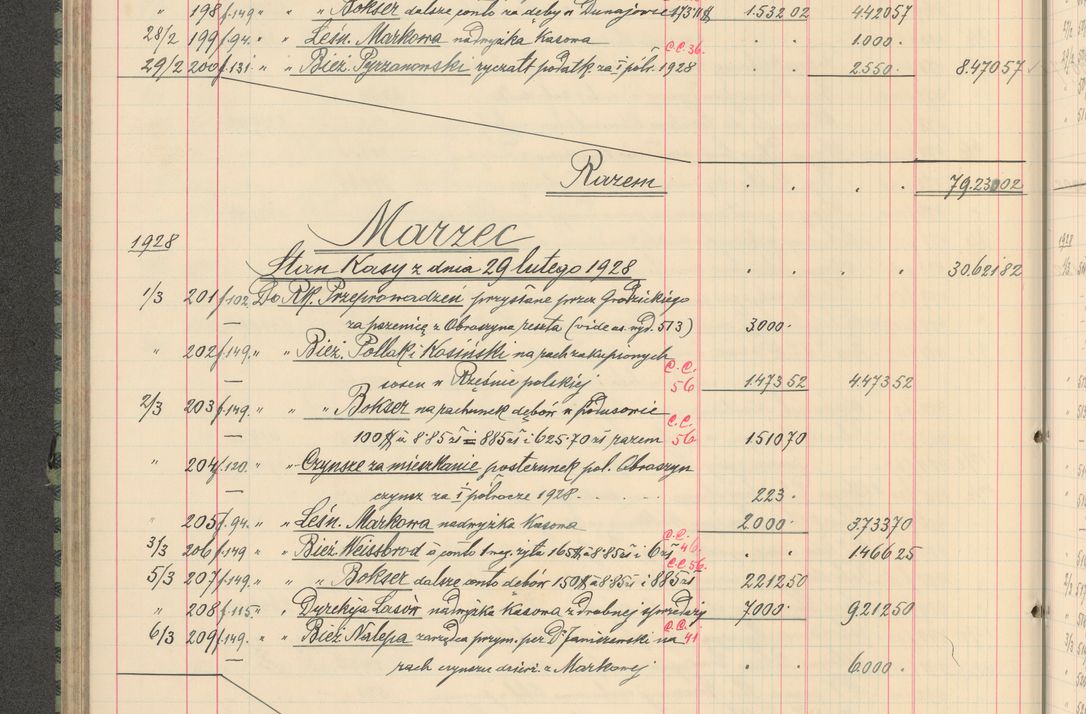 " 198 f.149 " " Bokser dalsze conto za dęby w Dunajowie 1.532 02 4.420 57
28/2 199 f.94. " " Leśn. Markowa nadwyżka Kasowa 1.000.
29/2 200 f.131 " " Bież. Pyrzanowski ryczałt podatk. za I półr. 1928 C.C.36. 2.550. 8.470 57
Razem 79.23 02
1928 Marzec
Stan Kasy z dnia 29 lutego 1928 30.621 82
1/3 201 f.102 Do Rk. Przeprowadzeń przysłane przez Grodzickiego
za pszenicę z Obroszyna reszta (vide as. wyd. 513) 3000.
" 202 f.149. " " Bież. Pollak i Kosiński na rach zakupionych
sosen w Rzęśnie polskiej C.C. 56 1.473 52 4.473 52
2/3 203 f.149. " " " Bokser na rachunek dębów w
100 à 8.85 zł = 885 zł i 625.70 zł razem C.C. 56 1510 70
" 204 f.120. " " Czynsze za mieszkanie posterunek pol. Obroszyn
czynsz za I półrocze 1928. 223.
" 205 f.94. " " Leśn. Markowa nadwyżka Kasowa 2000. 3.733 70
3/3 206 f.149 " " Bież. Weissbrod à conto 1 wag. żyta 165 à 8.85 zł i 6 zł C.C. 46. 1466 25
5/3 207 f.149. " " Bokser dalsze conto dębów 150 à 8.85 zł i 885 zł C.C. 56. 2212 50
" 208 f.115. " " Dyrekcja Lasów nadwyżka Kasowa z drobnej sprzedaży 7000. 9.212 50
6/3 209 f.149. " " Bież. Nalepa zarządca przym. per Dr Janiszewski na C.C. 41
rach czynszu dzierż. z Markowej 6.000.